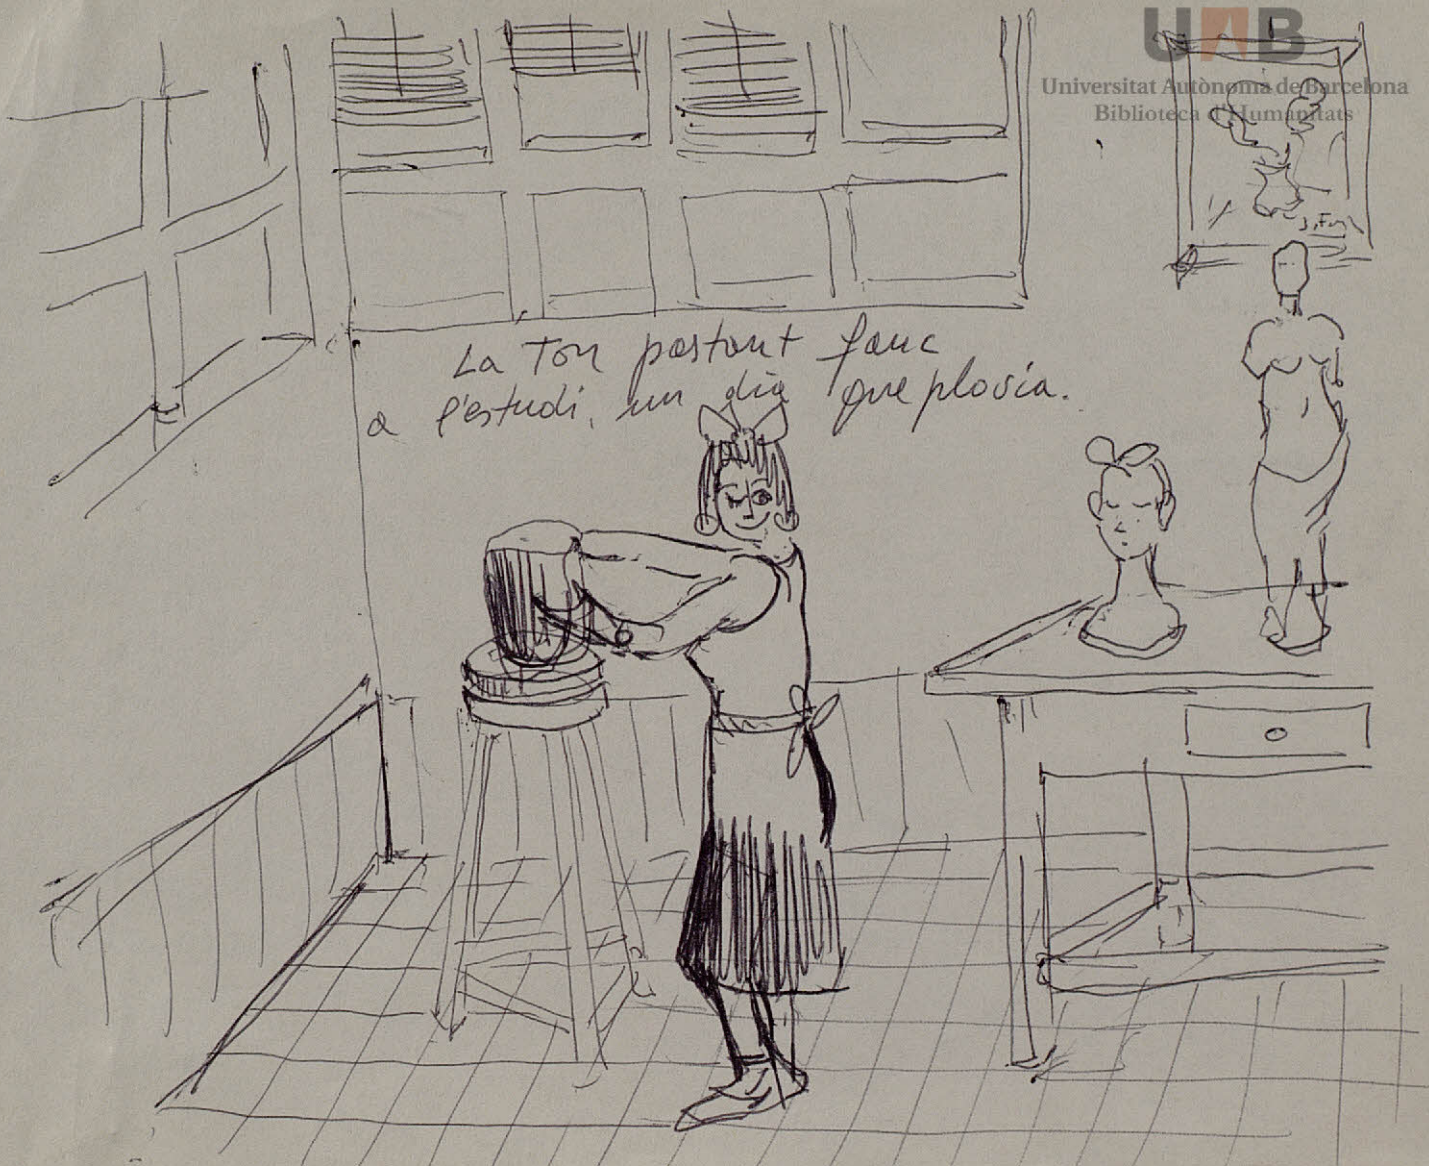 UAB
Universitat Autònoma de Barcelona
Biblioteca d'Humanitats
La Ton pastant fanc
a l'estudi, un dia que plovía.